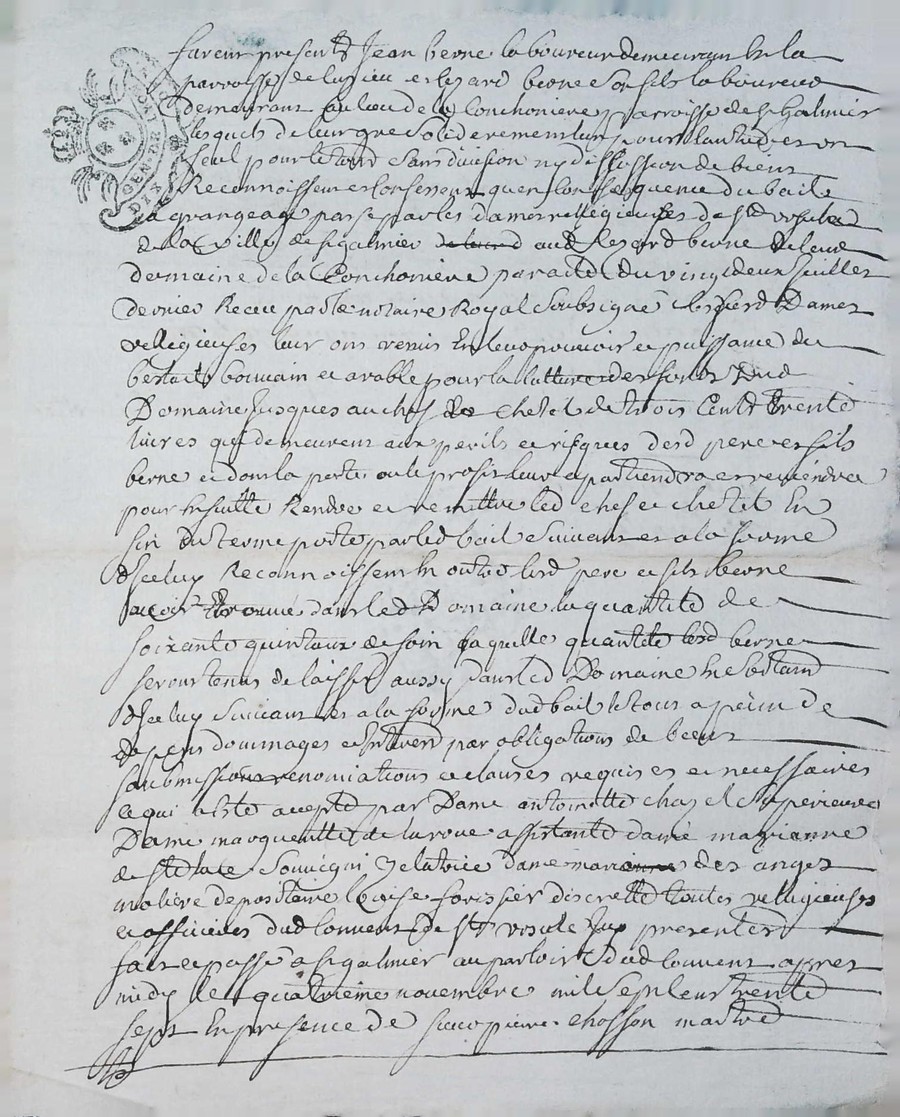 furent presents Jean berne laboureur demeurant en la
parroisse de et berne son fils laboureur
demeurant au lieu de la Conchoniere parroisse de st Galmier
lesquels de leur gré soliderement l'un pour l'autre et un
seul pour le tout sans division ny discussion de biens
Reconnoissent et Confessent qu'en Consequence du bail
a grangeage par se par les dames religieuses de ste ursule
de la Ville de st galmier aud berne de leur
domaine de la Conchoniere par acte du vingt deux Juillet
dernier Receu par le notaire Royal soubsigné lesd Dames
religieuses leur ont remis En leur pouvoir et puissance du
bestail et arable pour la Culture des fonds dud
Domaine Jusques au chef de chetel de trois Cents trente
livres qui demeurent aux perils et risques desd pere et fils
berne et dont la perte ou le profit leur apartiendra et reviendra
pour Ensuitte Rendre et remettre led chef et chetel En
fin du terme porté par led bail suivant et a la forme
d'Iceluy Reconnoissent En outre lesd pere et fils berne
avoir trouvé dans led Domaine la quantité de
soixante quintaux de foin laquelle quantité lesd berne
seront tenus de laisser aussy dans led Domaine En sortant
d'Iceluy suivant et a la forme dud bail le tout a peine de
depens dommages et Interets par obligations de biens
soubmissions renonciations et clauses requises et necessaires
ce qui a esté accepté par Dame antoinette superieure
Dame margueritte de la roue assistante dame marianne
de Zelatrice dame des anges
depositaire Louise forissier discrette toutes religieuses
et officieres dud Couvent de ste ursule Icy presentes
fait et passé a st galmier au parloir dud Couvent apres
midy le quatrieme novembre mil sept cent trente
sept En presence de sieur pierre chosson